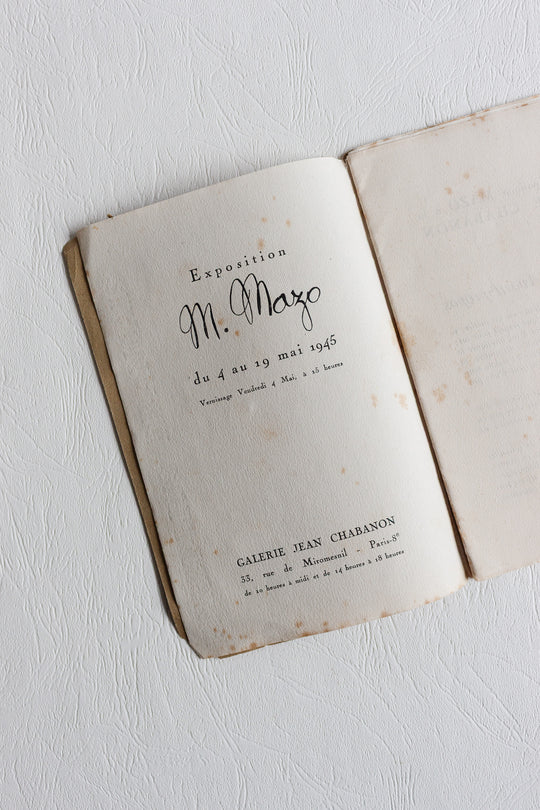 Exposition
M. Mazo
du 4 au 19 mai 1945
Vernissage Vendredi 4 Mai, à 15 heures
GALERIE JEAN CHABANON
33, rue de Miromesnil - Paris-8e
de 10 heures à midi et de 14 heures à 18 heures